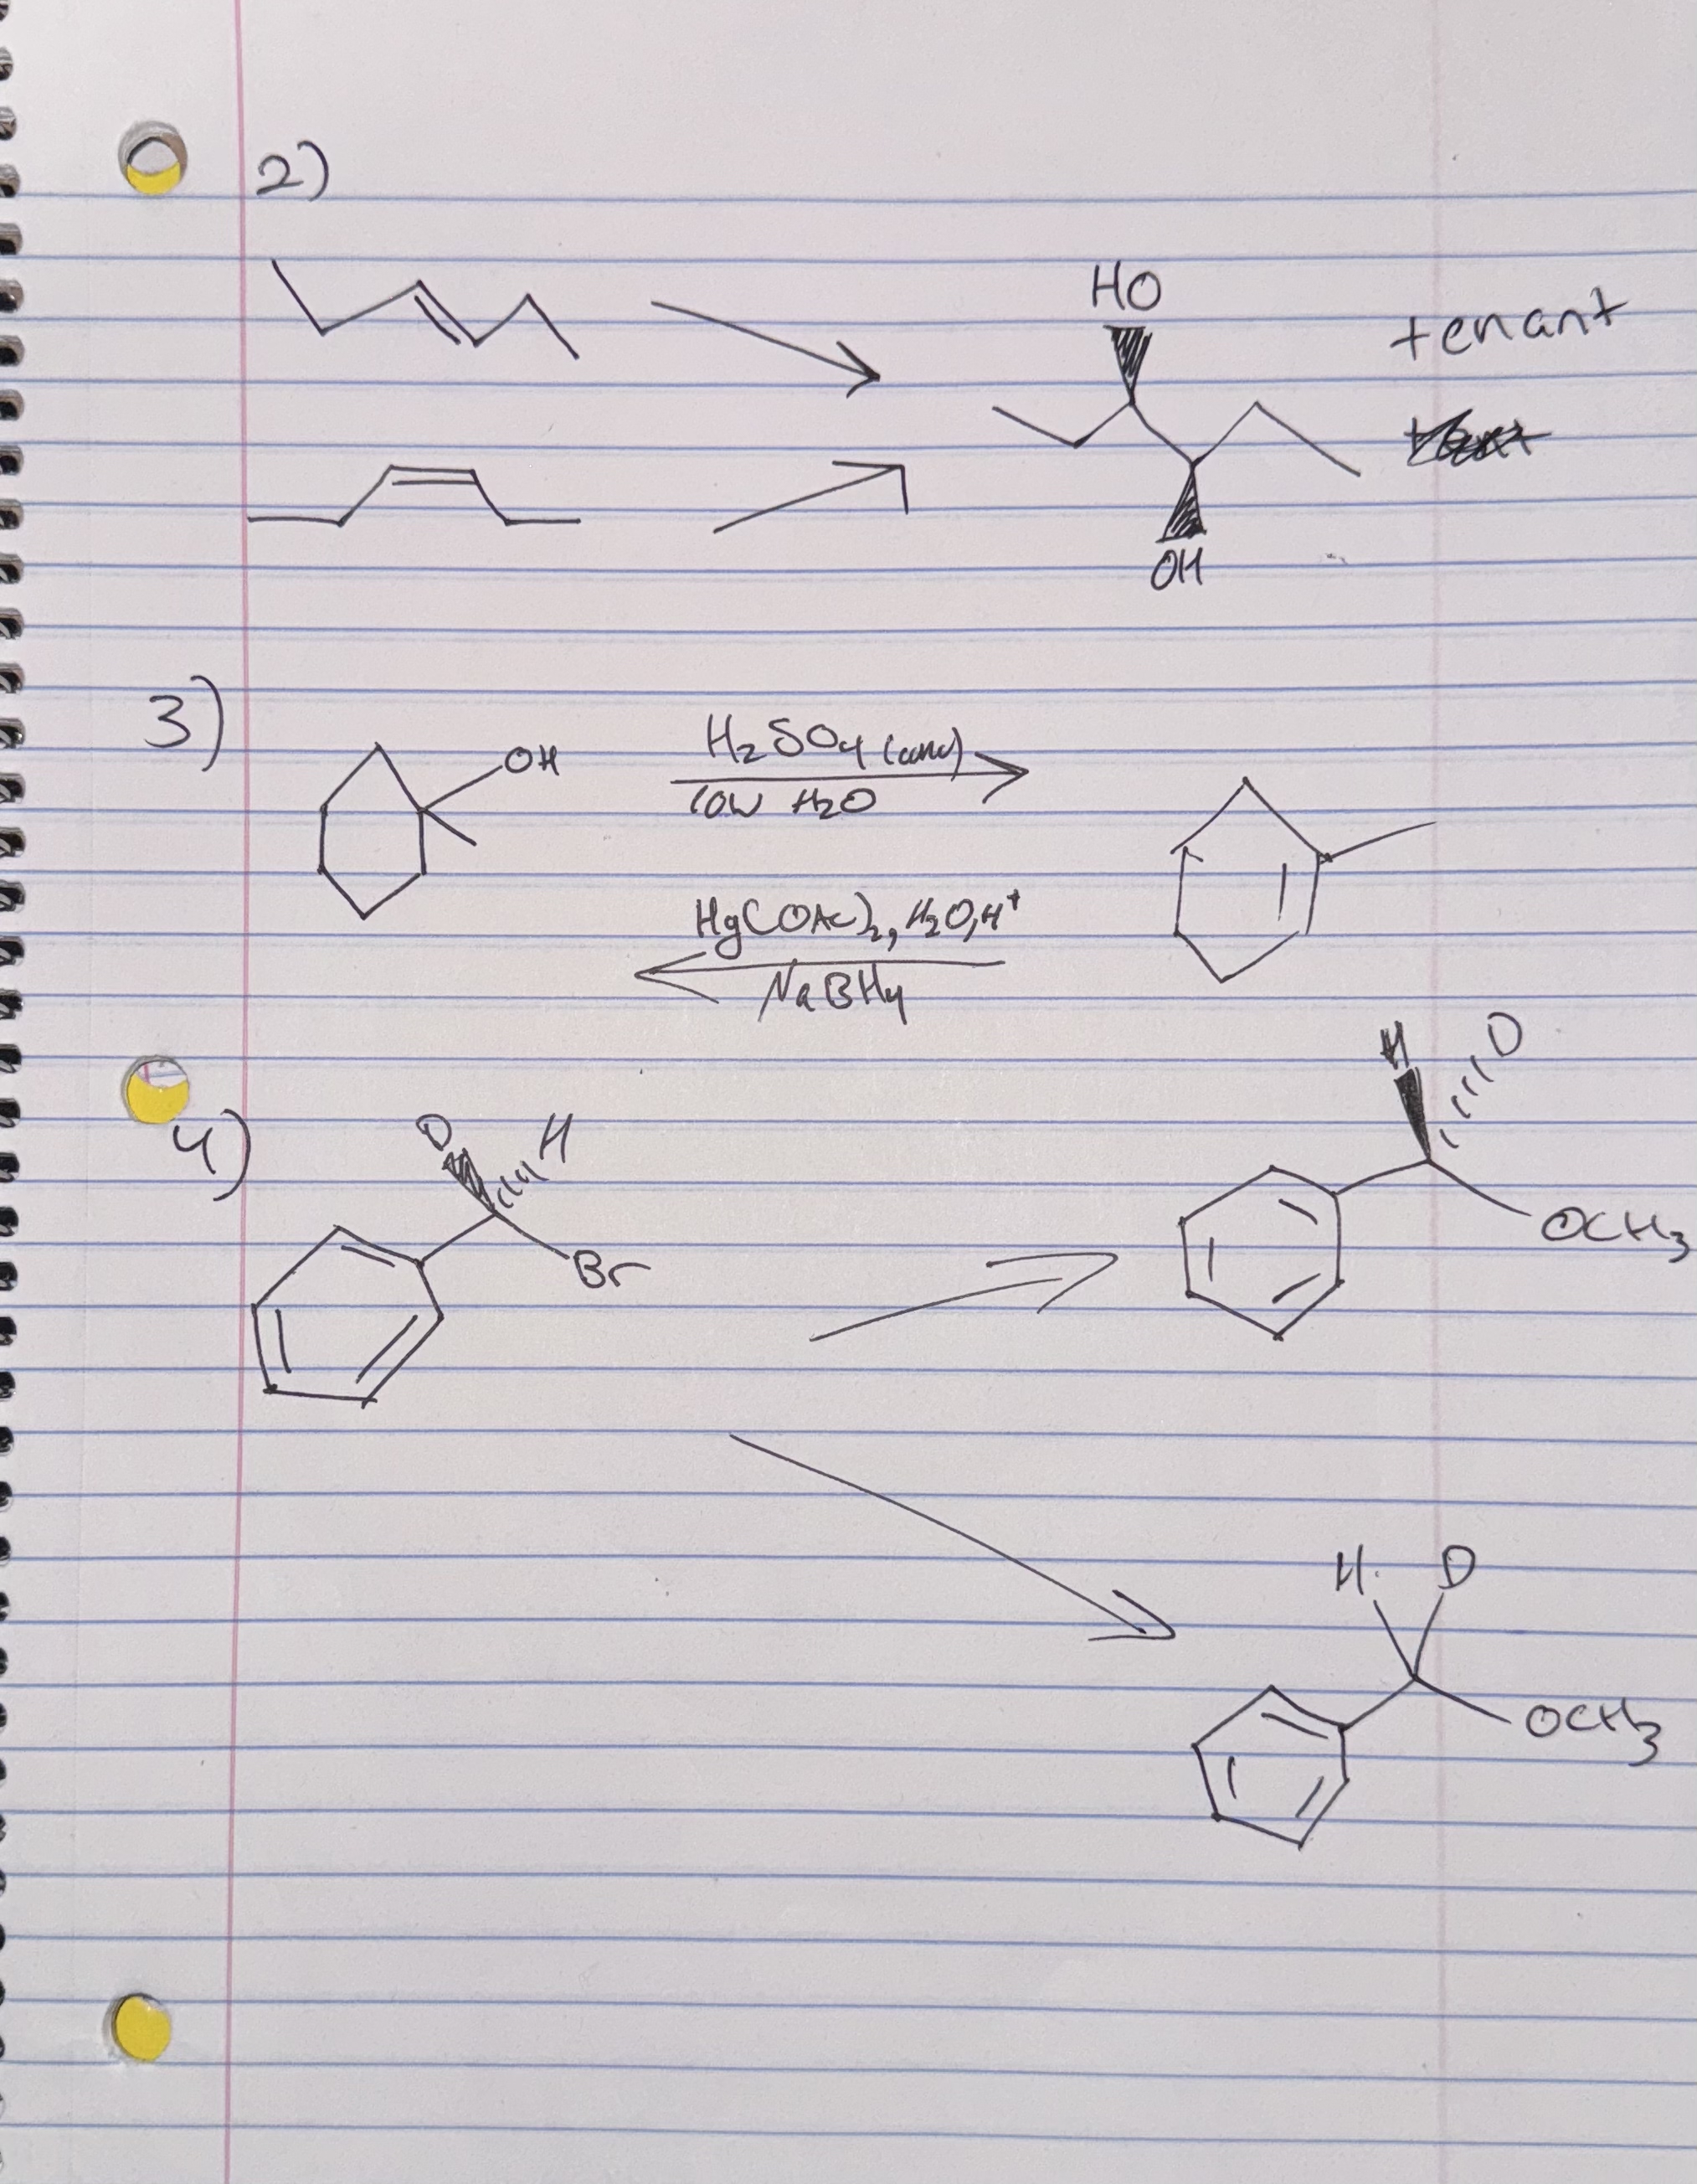 2)
HO
tenant
OH
3)
OH
H2SO4 (conc)
low H2O
Hg(OAc)2, H2O, H+
NaBH4
4)
D H
Br
H D
OCH3
H D
OCH3